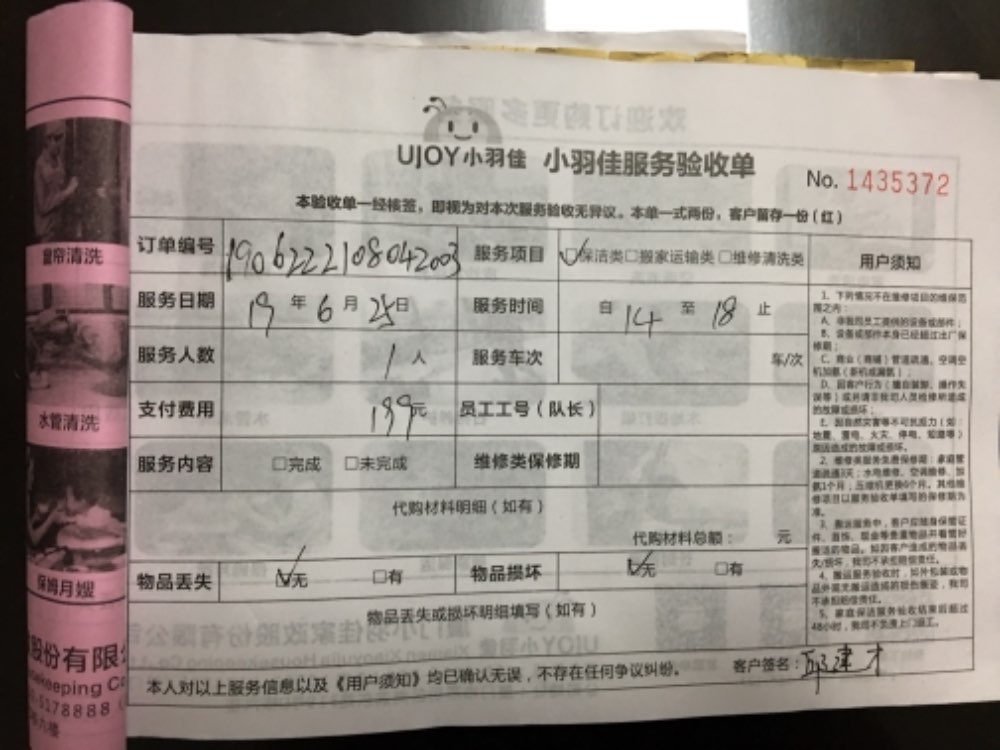 欢迎订购更多服务
UJOY小羽佳 小羽佳服务验收单
No. 1435372
本验收单一经核签，即视为对本次服务验收无异议。本单一式两份，客户留存一份（红）
订单编号 1906222108042003 服务项目 ☑保洁类□搬家运输类□维修清洗类 用户须知
服务日期 19 年 6 月 25日 服务时间 自 14 至 18 止
服务人数 1 人 服务车次 车/次
支付费用 199元 员工工号（队长）
服务内容 □完成 □未完成 维修类保修期
代购材料明细（如有）
代购材料总额： 元
物品丢失 ☑无 □有 物品损坏 ☑无 □有
物品丢失或损坏明细填写（如有）
本人对以上服务信息以及《用户须知》均已确认无误，不存在任何争议纠纷。 客户签名：
1、下列情况不在维修项目的维保范
围之内：
A、非我司员工提供的设备或部件；
B、设备或部件本身已经超过出厂保
修期；
C、商业（商铺）管道疏通、空调空
机加氨（新机或漏氨）；
D、因客户行为（擅自装卸、操作失
误等）或另请非我司人员维修所造成
的故障或损坏；
E、因自然灾害等不可抗拒力（如：
地震、雷电、火灾、停电、短路等）
原因造成的故障或损坏。
2、维修类服务免费保修期：家庭管
道疏通3天；水电维修、空调维修、加
氨1个月；压缩机更换6个月。其他维
修项目以服务验收单填写的保修期为
准。
3、搬运服务中，客户应随身保管证
件、首饰、现金等贵重物品并看管好
搬运的物品。如因客户造成的物品丢
失/损坏，我司不承担赔偿责任。
4、搬运服务验收时，如外包装或物
品外观无搬运造成的损伤痕迹，我司
不承担赔偿责任。
5、家庭保洁服务验收结束后超过
48小时，我司不负责上门返工。
窗帘清洗
水管清洗
保姆月嫂
股份有限
sekeeping Co
5178888
六楼